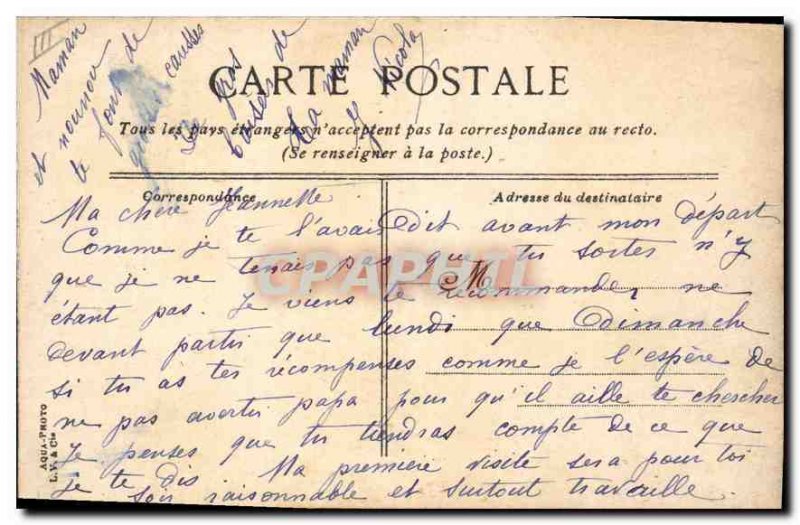 III
CARTE POSTALE
Tous les pays étrangers n'acceptent pas la correspondance au recto.
(Se renseigner à la poste.)
Correspondance
Adresse du destinataire
M
Ma chère Jeannette
Comme je te l'avais dit avant mon départ
que je ne tenais pas que tu sortes n'y
étant pas. Je viens te recommander, ne
devant partir que lundi que Dimanche
si tu as tes récompenses comme je l'espère de
ne pas avertir papa pour qu'il aille te chercher
Je penses que tu tiendras compte de ce que
je te dis Ma première visite sera pour toi
soir raisonnable et surtout travaille.
Maman
et nounou
te font de
caresses
gros
baiser de
ta maman
Nicola
AQUA-PHOTO
L.V. & Cie
CPAPHIL